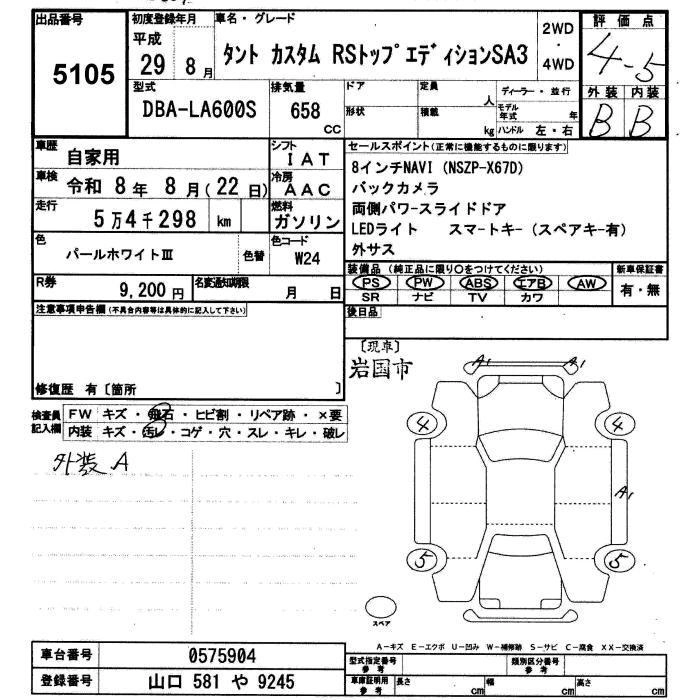 出品番号
5105
初度登録年月
平成
29年 8月
車名・グレード
タント カスタム RSトップエディションSA3
2WD
・
4WD
評価点
4-5
外装 内装
B B
型式
DBA-LA600S
排気量
658
cc
ドア
形状
定員
人
積載
kg
ディーラー・並行
モデル年式 年
ハンドル 左・右
車歴
自家用
シフト
IAT
車検
令和 8年 8月(22日)
冷房
AAC
走行
5万4千298 km
燃料
ガソリン
色
パールホワイトⅢ
色替
色コード
W24
R券
9,200円
名変通知期限
月 日
セールスポイント(正常に機能するものに限ります)
8インチNAVI (NSZP-X67D)
バックカメラ
両側パワースライドドア
LEDライト スマートキー(スペアキー有)
外サス
装備品(純正品に限り○をつけてください)
PS PW ABS エアB AW
SR ナビ TV カワ
新車保証書
有・無
後日品
注意事項申告欄(不具合内容等は具体的に記入して下さい)
修復歴 有〔箇所 〕
〔現車〕
岩国市
検査員
記入欄
FW キズ・飛石・ヒビ割・リペア跡・×要
内装 キズ・汚レ・コゲ・穴・スレ・キレ・破レ
外装 A
A1 A1
4 4
A1
5 5
スペア
A-キズ E-エクボ U-凹み W-補修跡 S-サビ C-腐食 XX-交換済
車台番号
0575904
登録番号
山口 581 や 9245
型式指定番号
参考
類別区分番号
参考
車庫証明用
参考
長さ cm
幅 cm
高さ cm